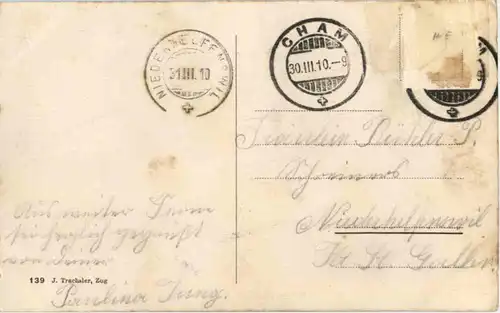 NIEDERHELFENSWIL
31.III.10
CHAM
30.III.10.-9
Fräulein Bühler P.
Niederhelfenswil
Kt. St. Gallen
Aus weiter Ferne
sei herzlich gegrüßt
von Deiner
Paulina Jung.
139 J. Trachsler, Zug